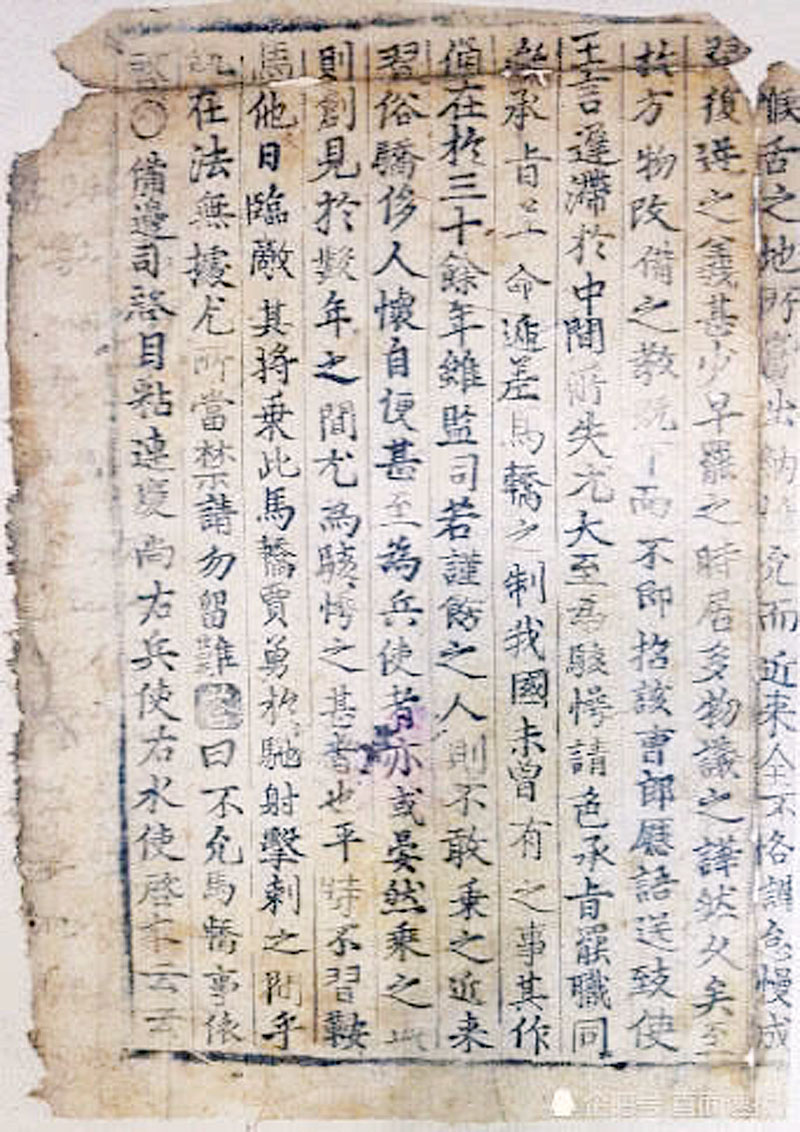 喉舌之地所當出納惟允而近来全不恪謹怠慢成
習復逆之義甚少早罷之時居多物議之譁然久矣至
於方物改備之教既下而不即招該曹郎廳語送致使
王言遲滯於中間所失尤大至為駭愕請色承旨罷職同
參承旨並命遞差馬轎之制我國未曾有之事其作
俑在於三十餘年雖監司若謹飭之人則不敢乗之近来
習俗驕侈人懷自便甚至為兵使者亦或晏然乗之此
則創見於數年之間尤為駭愕之甚者也平時不習鞍
馬他日臨敵其将乗此馬轎賈勇於馳射擊刺之間乎
在法無據尤所當禁請勿留難 曰不允馬轎事依
啓〇備邊司啓目粘連慶尚右兵使右水使啓本云云